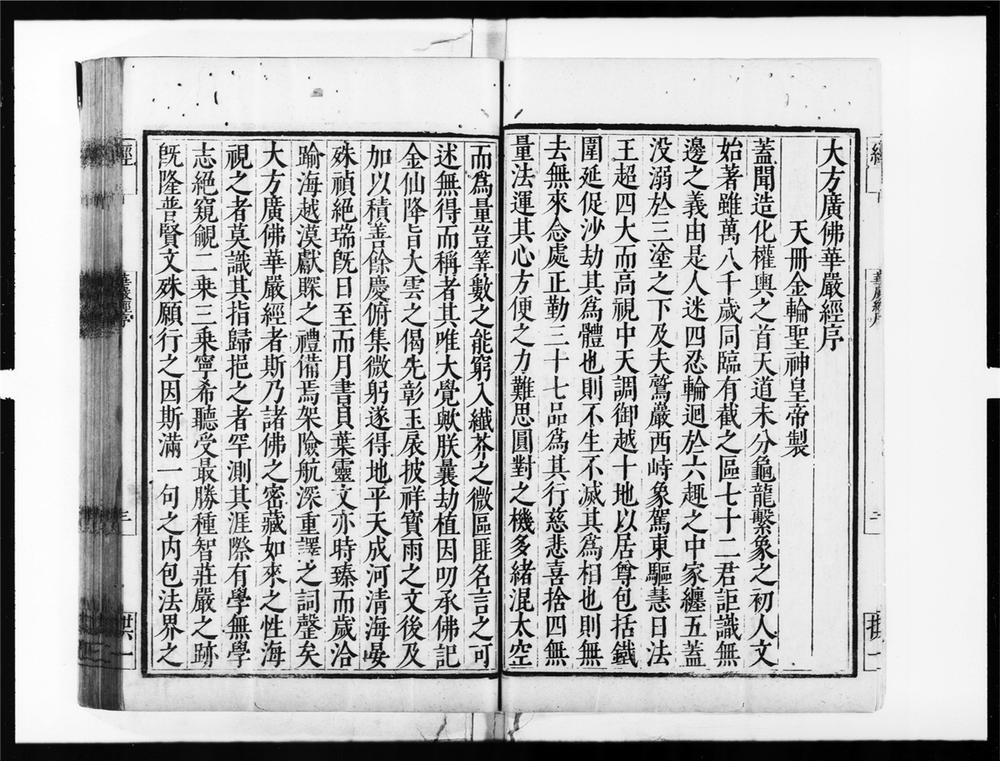 大方廣佛華嚴經序
天冊金輪聖神皇帝製
蓋聞造化權輿之首天道未分龜龍繫象之初人文
始著雖萬八千歲同臨有截之區七十二君詎識無
邊之義由是人迷四忍輪迴於六趣之中家纏五蓋
没溺於三塗之下及夫鷲巖西峙象駕東驅慧日法
王超四大而高視中天調御越十地以居尊包括鐵
圍延促沙劫其爲體也則不生不滅其爲相也則無
去無來念處正勤三十七品爲其行慈悲喜捨四無
量法運其心方便之力難思圓對之機多緒混太空
而爲量豈筭數之能窮入纖芥之微區匪名言之可
述無得而稱者其唯大覺歟朕曩劫植因叨承佛記
金仙降旨大雲之偈先彰玉扆披祥寶雨之文後及
加以積善餘慶俯集微躬遂得地平天成河清海晏
殊禎絕瑞旣日至而月書貝葉靈文亦時臻而歲洽
踰海越漠獻賝之禮備焉架險航深重譯之詞罄矣
大方廣佛華嚴經者斯乃諸佛之密藏如來之性海
視之者莫識其指歸挹之者罕測其涯際有學無學
志絕窺覦二乘三乘寧希聽受最勝種智莊嚴之跡
旣隆普賢文殊願行之因斯滿一句之内包法界之
經
華嚴經序
三
拱一